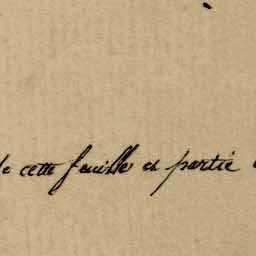 de cette feuille es partie